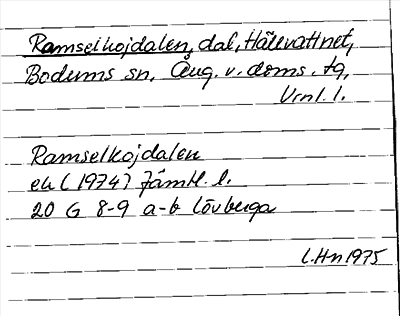 Ramselkojdalen, dal, Hällvattnet,
Bodums sn, Ång. v. doms. tg,
Vrnl. l.
Ramselkojdalen
ek (1974) Jämtl. l.
20 G 8-9 a-b Lövberga
L.Hn 1975